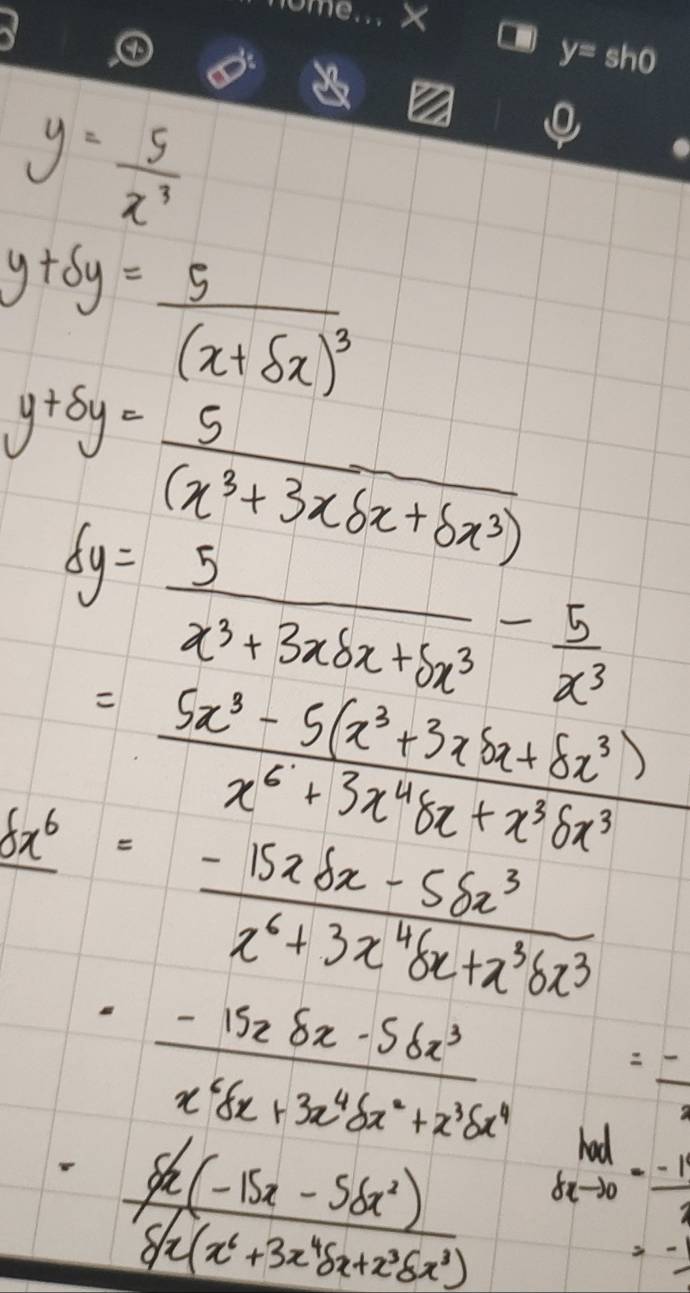 y= sh0
y = 5/x³
y+δy = 5/(x+δx)³
y+δy = 5/(x³+3xδx+δx³)
δy = 5/(x³+3xδx+δx³) - 5/x³
= (5x³ - 5(x³+3xδx+δx³))/(x⁶+3x⁴δx+x³δx³)
δx⁶ = (-15xδx - 5δx³)/(x⁶+3x⁴δx+x³δx³)
= (-15xδx - 5δx³)/(x⁶δx+3x⁴δx²+x³δx⁴)
= δx(-15x - 5δx²)/δx(x⁶+3x⁴δx+x³δx³)
= -
had δx→0 = -1
= -1